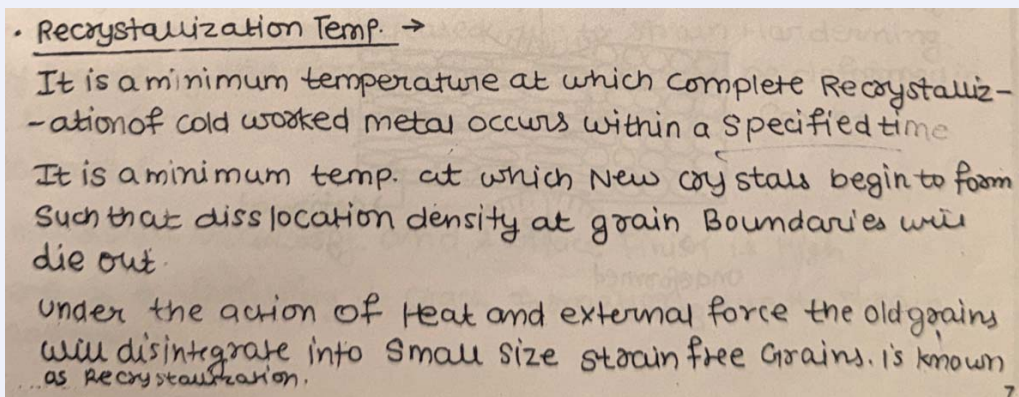 • Recrystallization Temp. →
It is a minimum temperature at which Complete Recrystalliz-
-ation of cold worked metal occurs within a Specified time
It is a minimum temp. at which New crystals begin to form
Such that disslocation density at grain Boundaries will
die out.
Under the action of Heat and external force the old grains
will disintegrate into Small Size strain free Grains. is known
as Recrystallization.
7